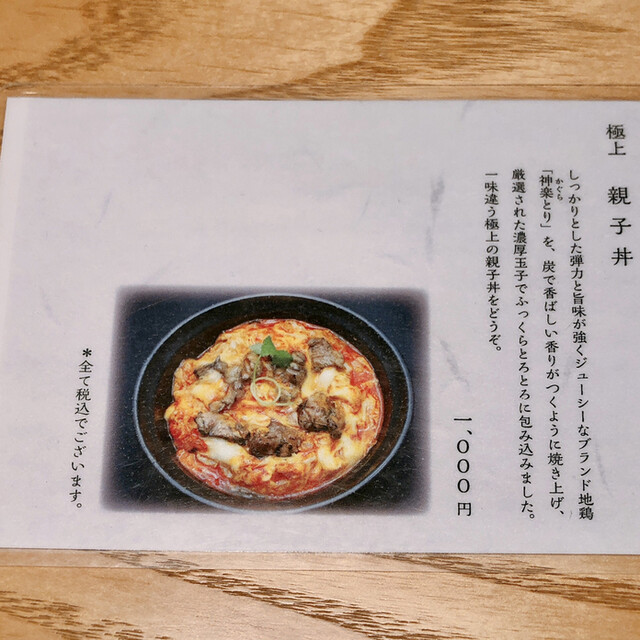 極上 親子丼
しっかりとした弾力と旨味が強くジューシーなブランド地鶏
「神楽とり」を、炭で香ばしい香りがつくように焼き上げ、
かぐら
厳選された濃厚玉子でふっくらとろとろに包み込みました。
一味違う極上の親子丼をどうぞ。
一、〇〇〇円
＊全て税込でございます。